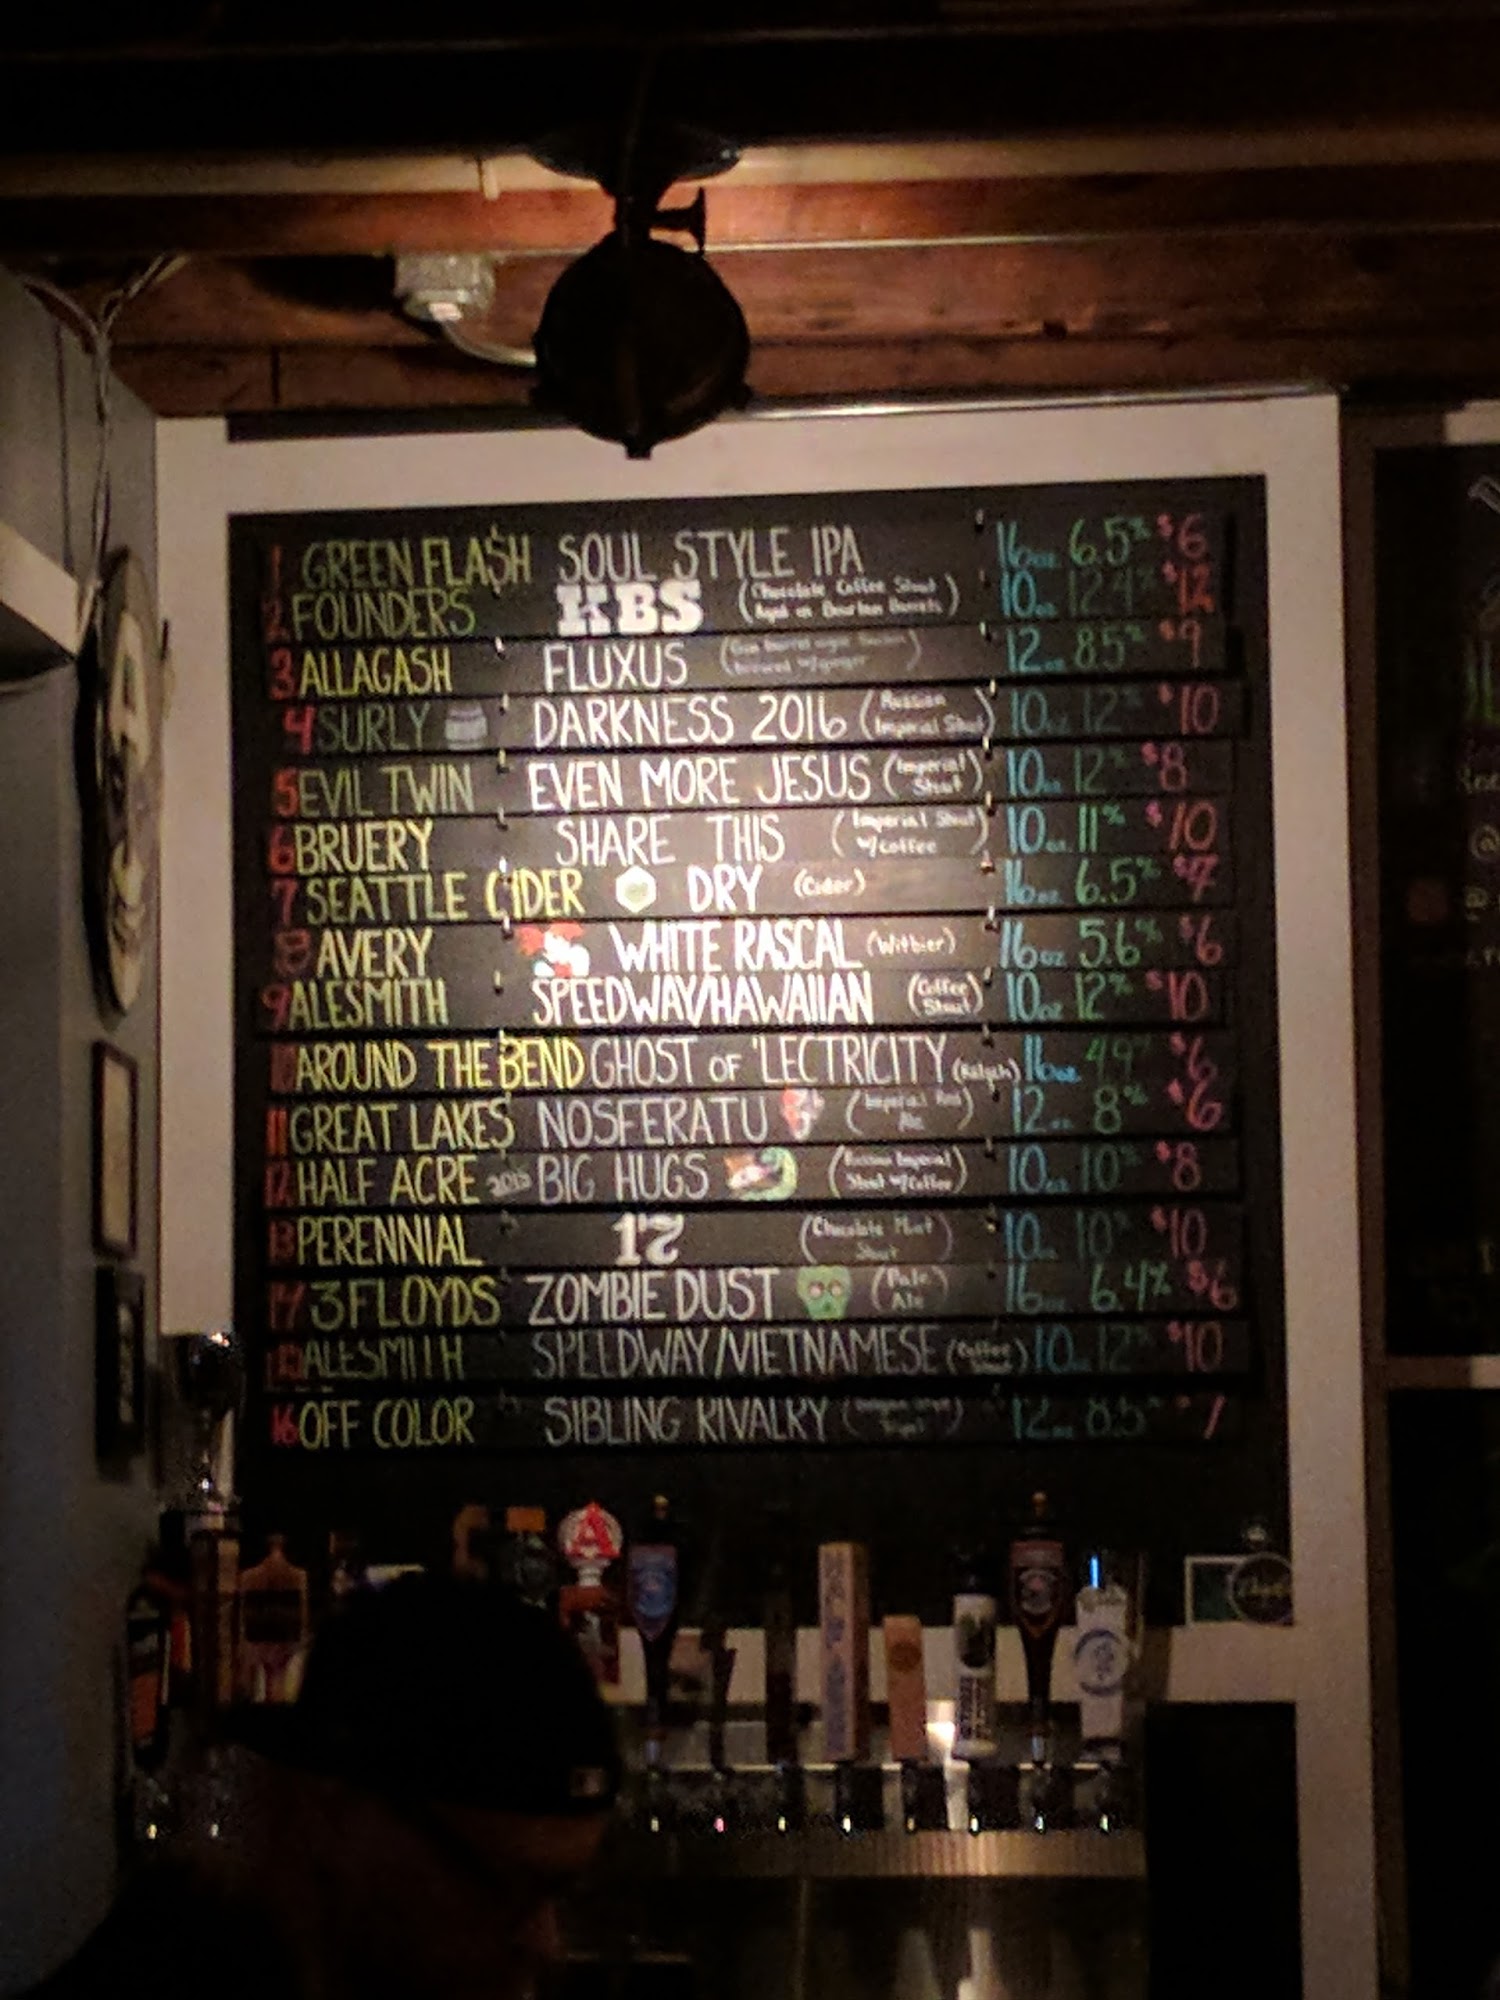 1 GREEN FLA$H SOUL STYLE IPA 16oz 6.5% $6
2 FOUNDERS KBS (Chocolate Coffee Stout Aged in Bourbon Barrels) 10oz 12.4% $12
3 ALLAGASH FLUXUS 12oz 8.5% $9
4 SURLY DARKNESS 2016 (Russian Imperial Stout) 10oz 12% $10
5 EVIL TWIN EVEN MORE JESUS (Imperial Stout) 10oz 12% $8
6 BRUERY SHARE THIS (Imperial Stout w/coffee) 10oz 11% $10
7 SEATTLE CIDER DRY (Cider) 16oz 6.5% $7
8 AVERY WHITE RASCAL (Witbier) 16oz 5.6% $6
9 ALESMITH SPEEDWAY/HAWAIIAN (Coffee Stout) 10oz 12% $10
10 AROUND THE BEND GHOST OF 'LECTRICITY 16oz 4.9% $6
11 GREAT LAKES NOSFERATU (Imperial Red Ale) 12oz 8% $6
12 HALF ACRE 2015 BIG HUGS (Russian Imperial Stout w/Coffee) 10oz 10% $8
13 PERENNIAL 17 (Chocolate Mint Stout) 10oz 10% $10
14 3 FLOYDS ZOMBIE DUST (Pale Ale) 16oz 6.4% $6
15 ALESMITH SPEEDWAY/VIETNAMESE (Coffee Stout) 10oz 12% $10
16 OFF COLOR SIBLING RIVALRY 12oz 8.5% 7
A